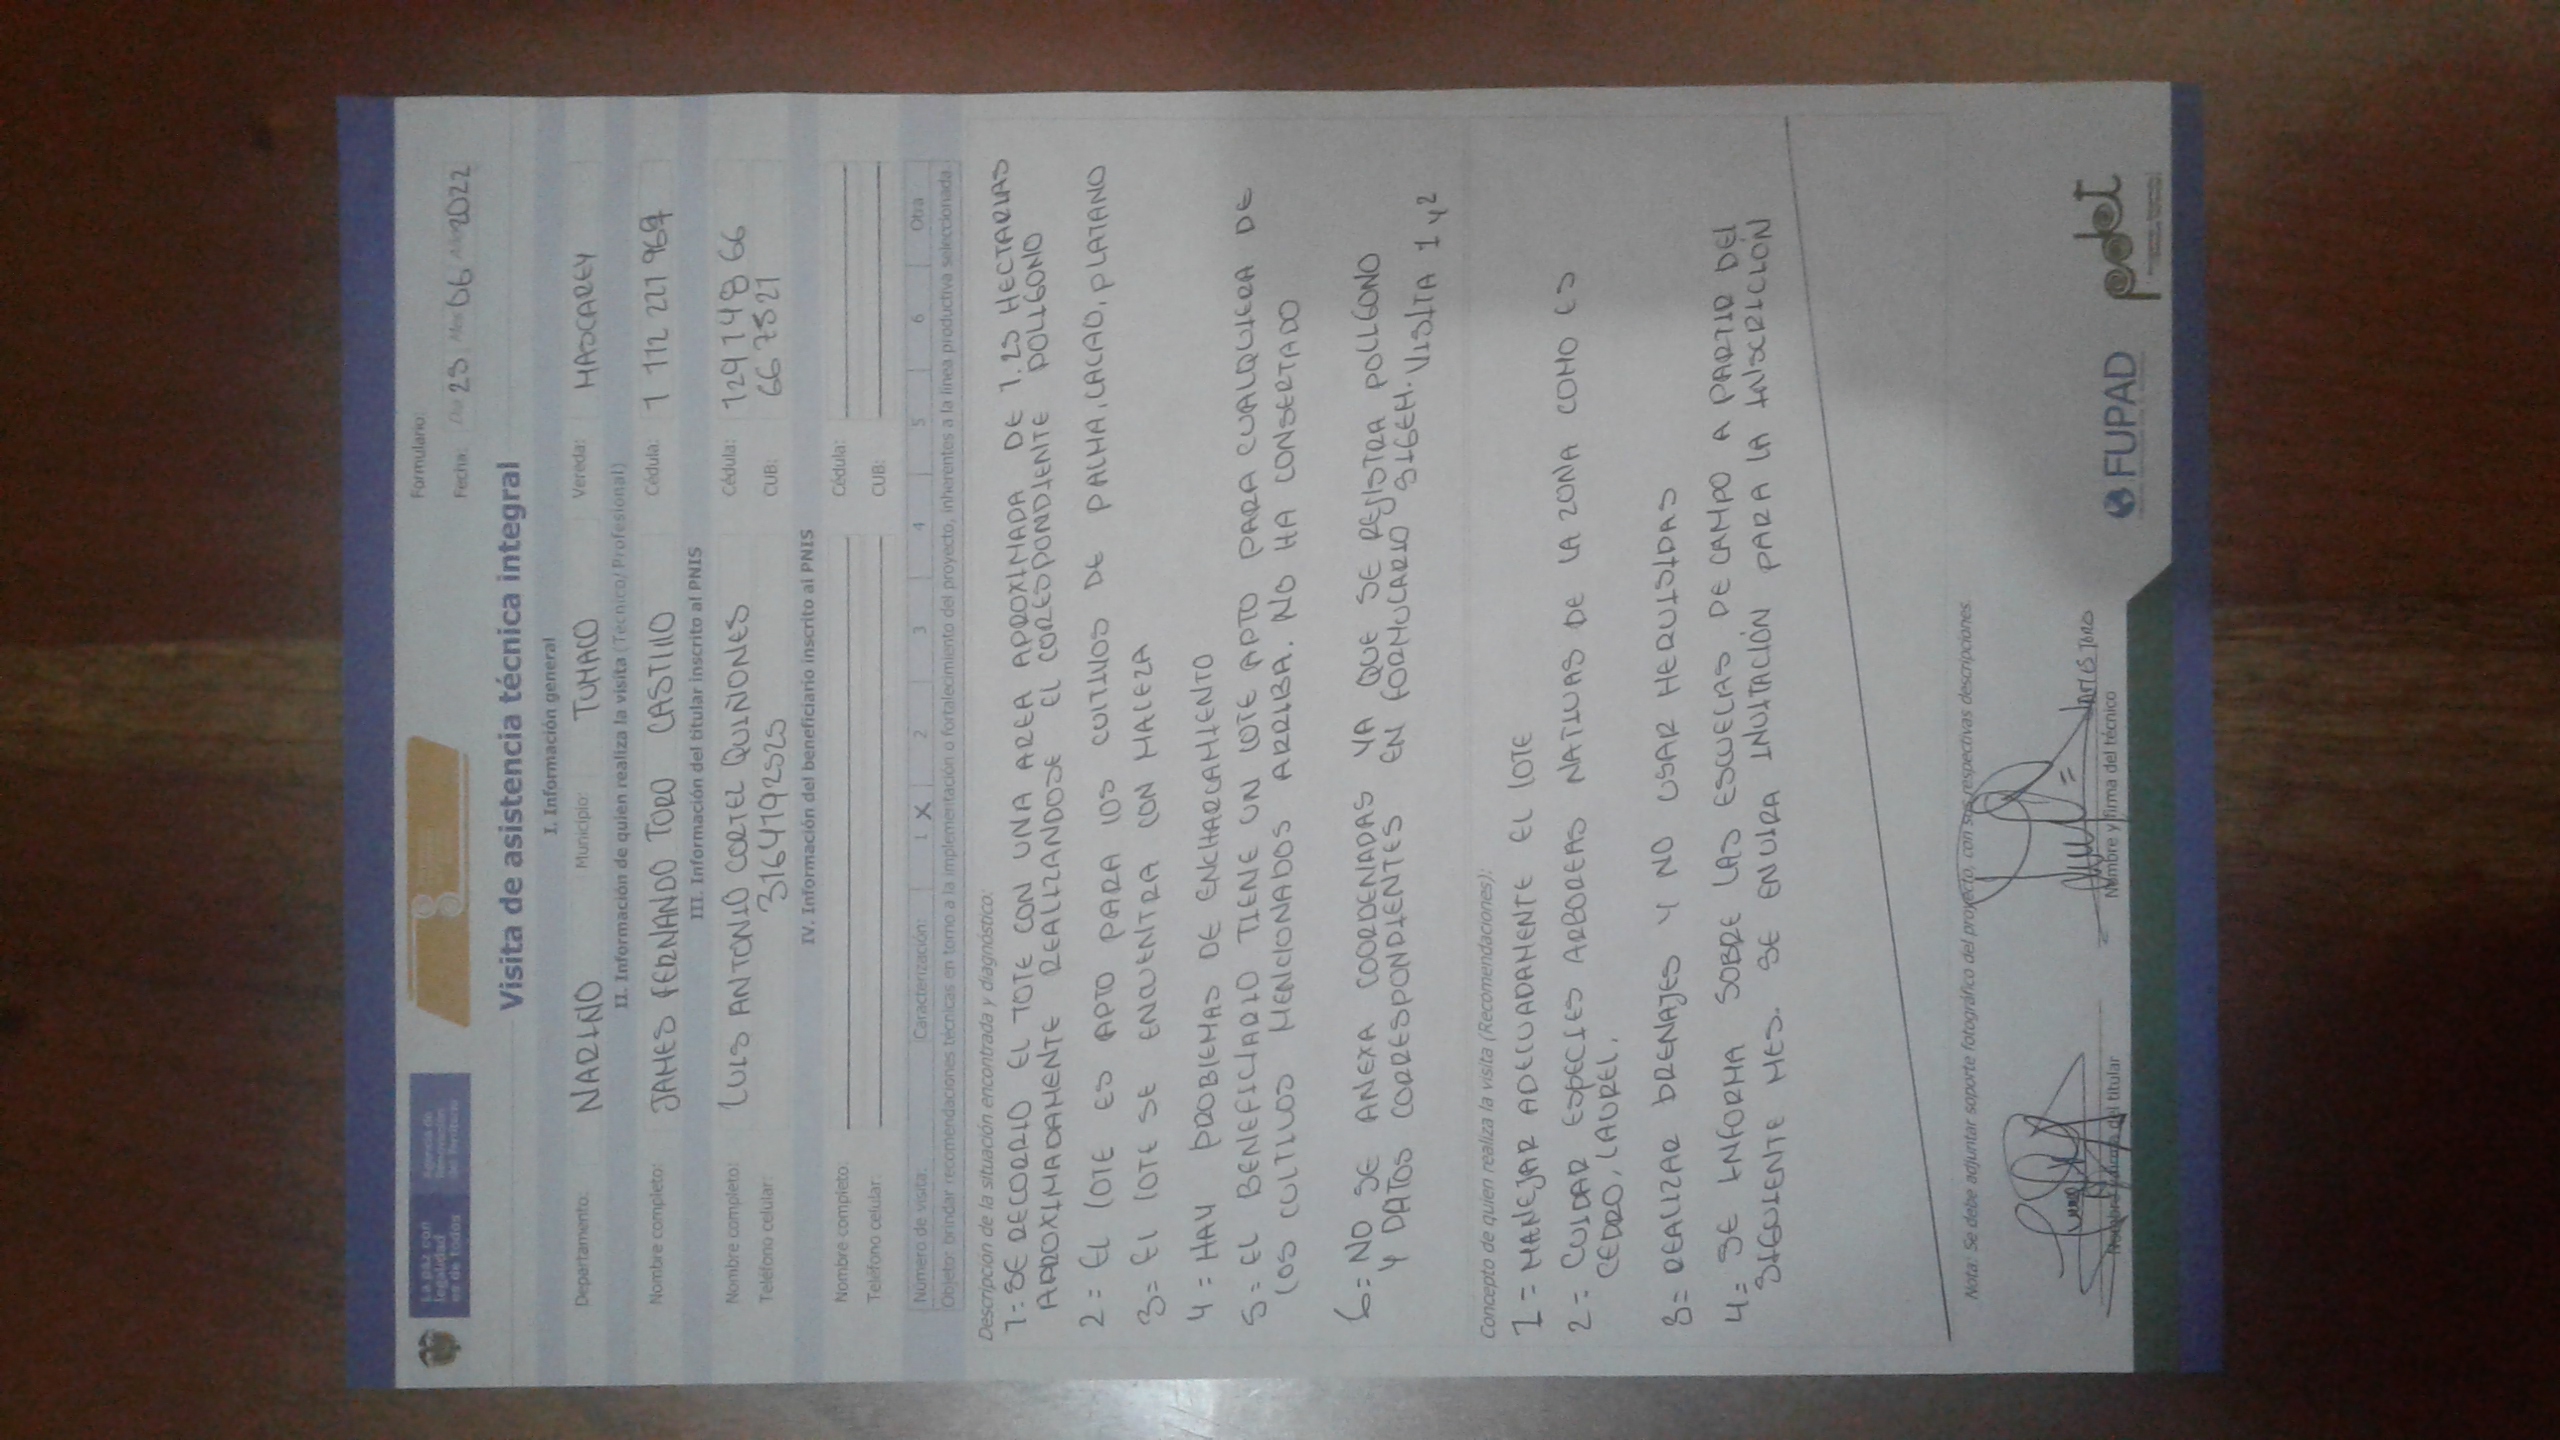 La paz con
legalidad
es de todos
Agencia de
Renovación
del Territorio
Formulario:
Fecha: Día 23 Mes 06 Año 2022
Visita de asistencia técnica integral
I. Información general
Departamento: NARIÑO Municipio: TUMACO Vereda: MASCAREY
II. Información de quien realiza la visita (Técnico/Profesional)
Nombre completo: JAMES FERNANDO TORO CASTILLO Cédula: 1 112 221 969
III. Información del titular inscrito al PNIS
Nombre completo: LUIS ANTONIO CORTEL QUIÑONES Cédula: 12919866
Teléfono celular: 3164792525 CUB: 667521
IV. Información del beneficiario inscrito al PNIS
Nombre completo: Cédula:
Teléfono celular: CUB:
Número de visita: Caracterización: 1 X 2 3 4 5 6 Otra
Objeto: brindar recomendaciones técnicas en torno a la implementación o fortalecimiento del proyecto, inherentes a la línea productiva seleccionada.
Descripción de la situación encontrada y diagnóstico:
1= SE RECORRIO EL LOTE CON UNA AREA APROXIMADA DE 1.25 HECTARIAS
APROXIMADAMENTE REALIZANDOSE EL CORESPONDIENTE POLIGONO
2= El LOTE ES APTO PARA LOS CULTIVOS DE PALMA, CACAO, PLATANO
3= El LOTE SE ENCUENTRA CON MALEZA
4= HAY PROBLEMAS DE ENCHARCAMIENTO
5= EL BENEFICIARIO TIENE UN LOTE APTO PARA CUALQUIERA DE
LOS CULTIVOS MENCIONADOS ARRIBA. NO HA CONSERTADO
6= NO SE ANEXA COORDENADAS YA QUE SE REJISTRA POLIGONO
Y DATOS CORRESPONDIENTES EN FORMULARIO SIGEH. VISITA 1 y 2
Concepto de quien realiza la visita (Recomendaciones):
1= MANEJAR ADECUADAMENTE El LOTE
2= CUIDAR ESPECIES ARBOREAS NATIVAS DE LA ZONA COMO ES
CEDRO, LAUREL.
3= REALIZAR DRENAJES Y NO USAR HERVISIDAS
4= SE INFORMA SOBRE LAS ESCUELAS DE CAMPO A PARTIR DEL
SIGUIENTE MES. SE ENVIRA INVITACIÓN PARA LA INSCRICIÓN
Nota: Se debe adjuntar soporte fotográfico del proyecto, con sus respectivas descripciones.
Nombre y firma del titular
James Toro
Nombre y firma del técnico
FUPAD
pdet